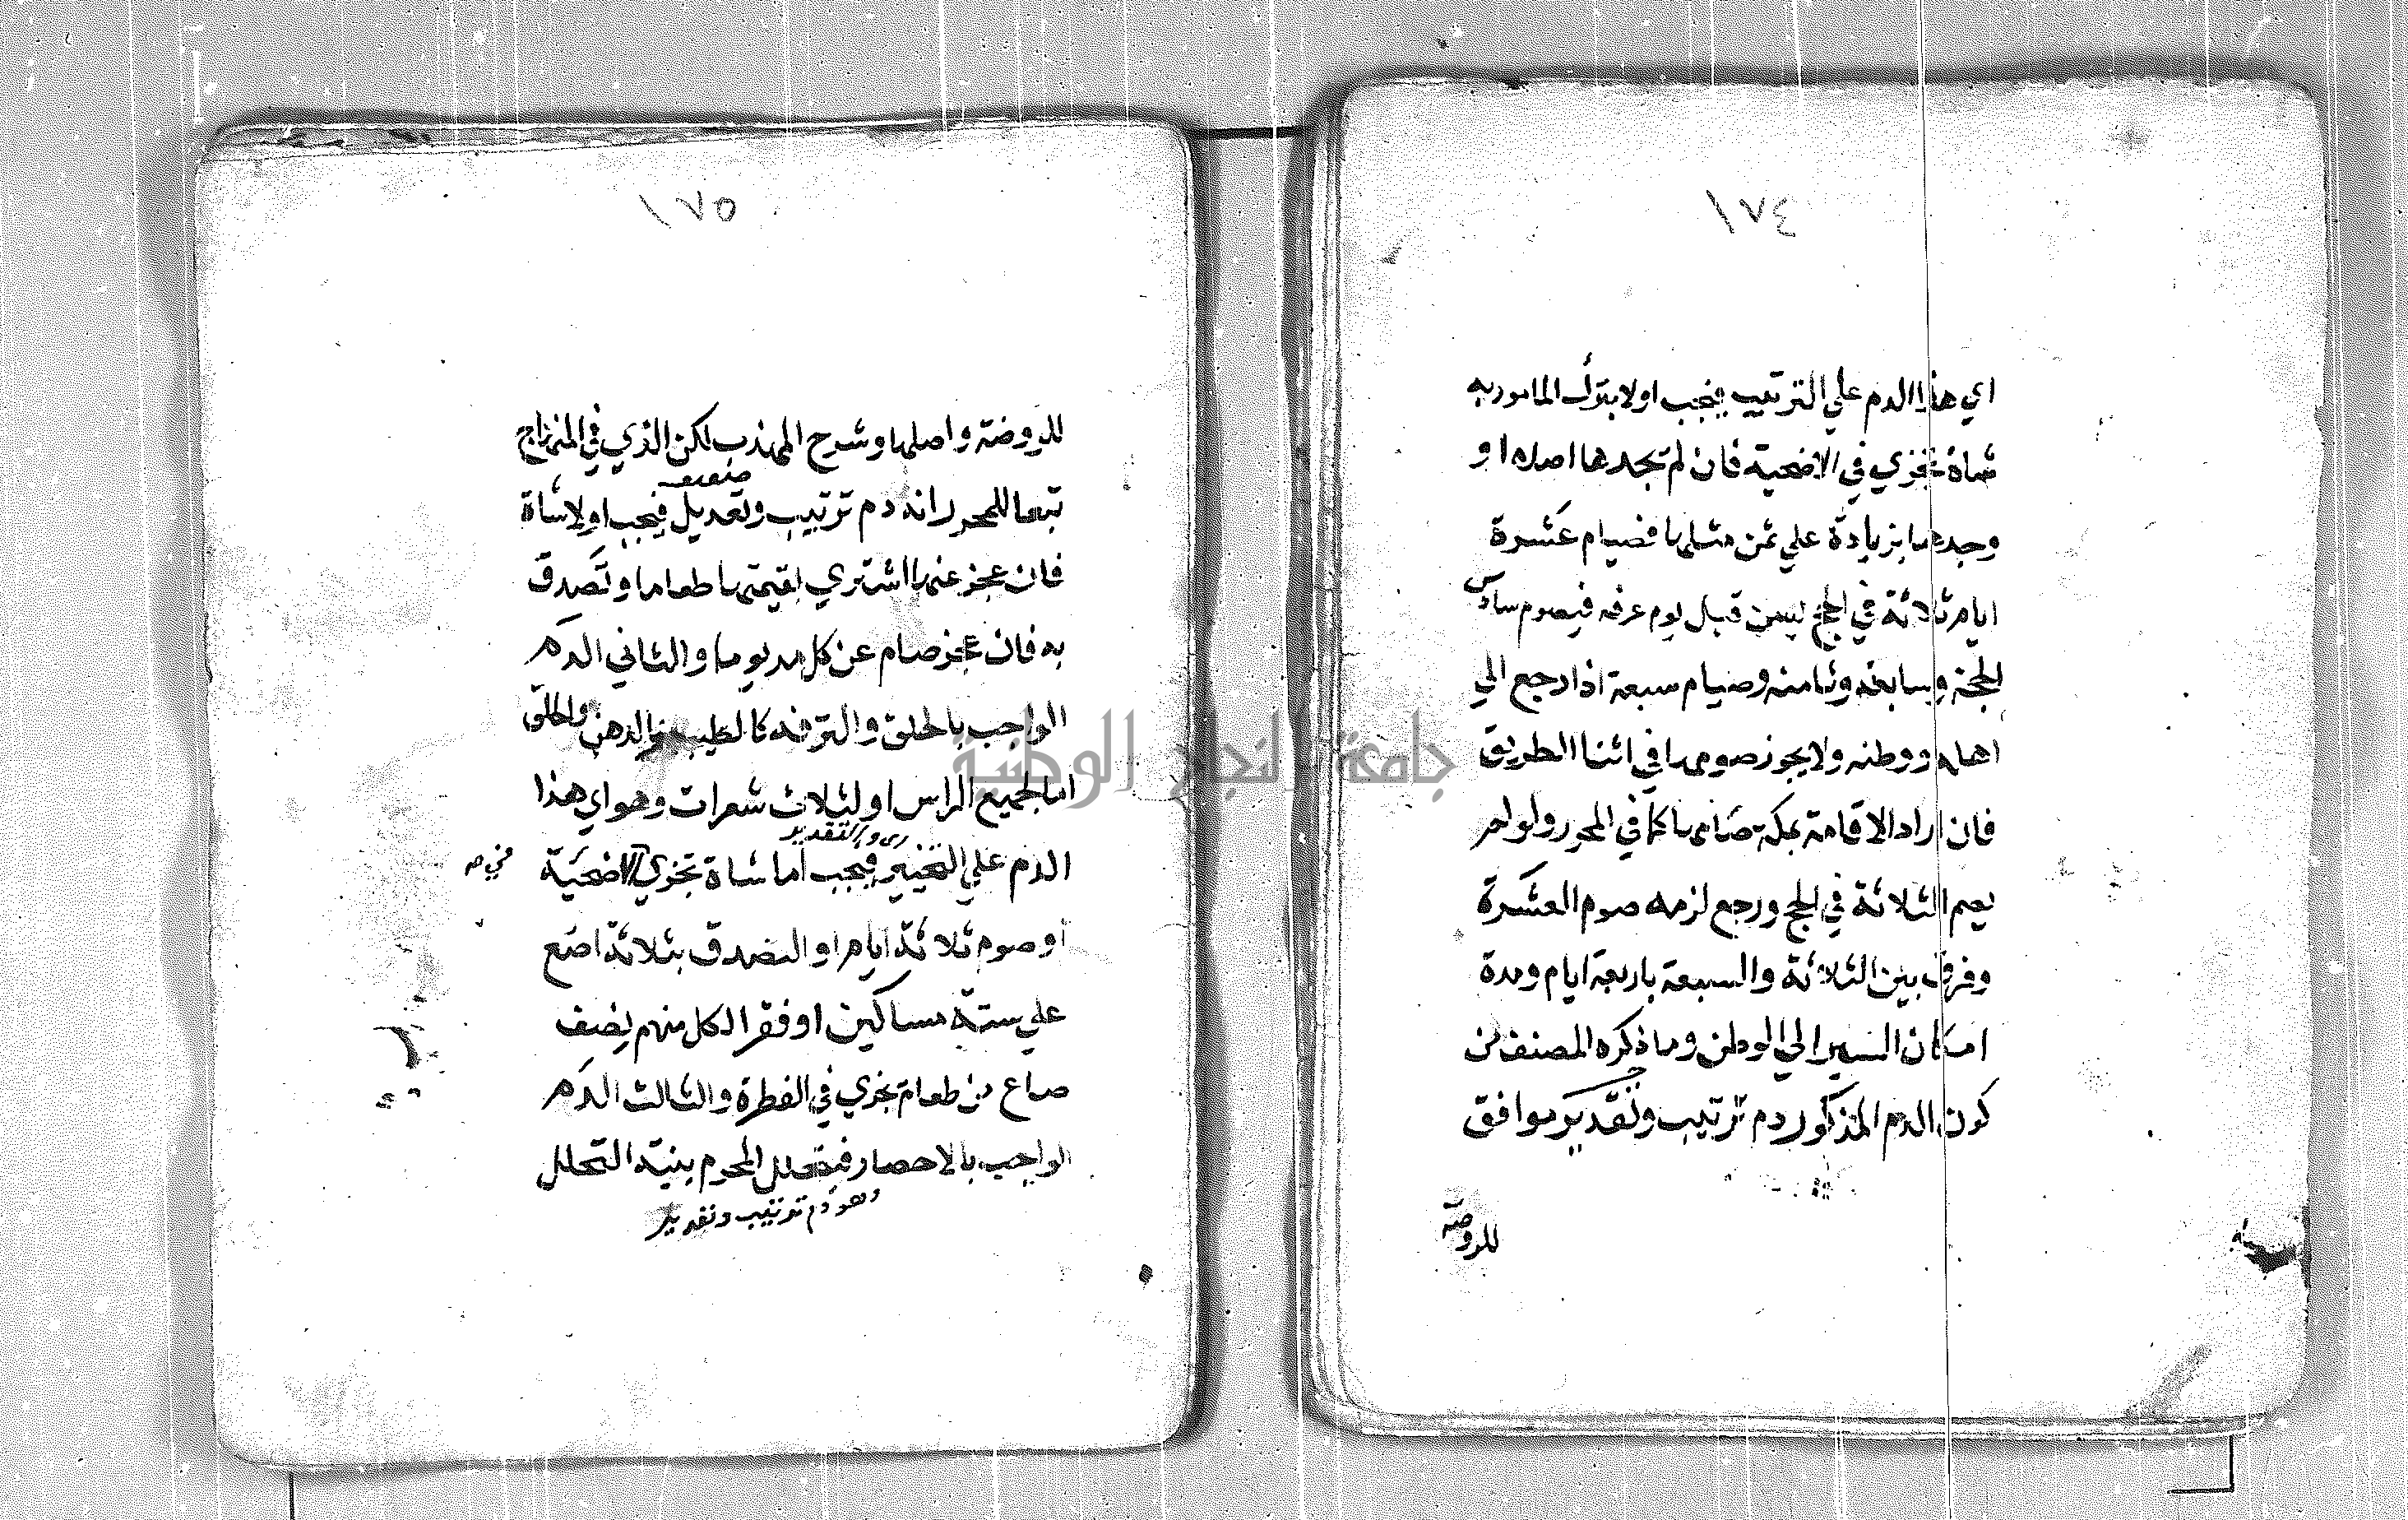 ١٧٤
اي هذا الدم علي الترتيب فيجب اولا بترك المامور به
شاة تجزي في الاضحية فان لم تجدها اصلا او
وجدها بزيادة علي ثمن مثلها فصيام عشرة
ايام ثلاثة في الحج ليسن قبل يوم عرفه فيصوم سادس
الحجة وسابعه وثامنه وصيام سبعة اذا رجع الي
اهله ووطنه ولا يجوز صومها في اثنا الطريق
فان اراد الاقامة بمكة صامها كما في المحرر ولو لم
يصم الثلاثة في الحج ورجع لزمه صوم العشرة
وفرق بين الثلاثة والسبعة باربعة ايام ومدة
امكان السير الي الوطن وما ذكره المصنف من
كون الدم المذكور دم ترتيب وتقدير موافق
للروضة
١٧٥
للروضة واصلها وشرح المهذب لكن الذي في المنهاج
ضعيف
تبعا للمحرر انه دم ترتيب وتعديل فيجب اولا شاة
فان عجز عنها اشتري بقيمتها طعاما وتصدق
به فان عجز صام عن كل مد يوما والثاني الدم
الواجب بالحلق والترفه كالطيب والدهن والحلق
اما لجميع الراس او لثلاث شعرات وهو اي هذا
والتقدير
الدم علي التخيير فيجب اما شاة تجزي الاضحية
في صه
او صوم ثلاثة ايام او التصدق بثلاثة اصع
علي ستة مساكين او فقرا لكل منهم نصف
صاع من طعام يجزي في الفطرة والثالث الدم
الواجب بالاحصار فيتحلل المحرم بنية التحلل
وهو دم ترتيب وتقدير
جامعة النجاح الوطنية